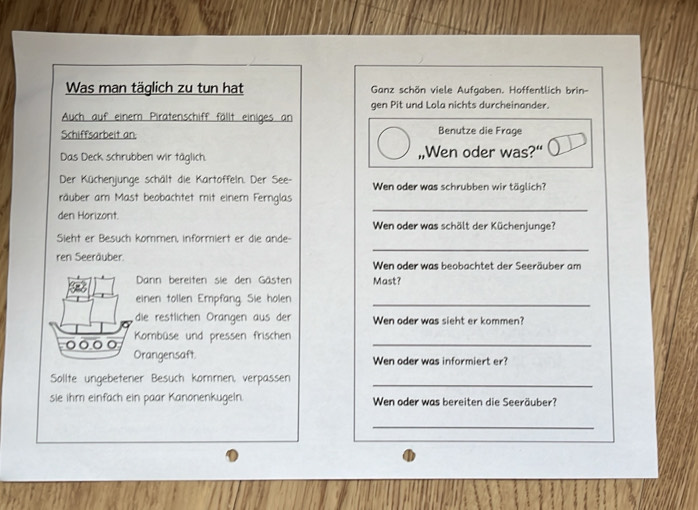 Was man täglich zu tun hat
Auch auf einem Piratenschiff fällt einiges an
Schiffsarbeit an.
Das Deck schrubben wir täglich.
Der Küchenjunge schält die Kartoffeln. Der See-
räuber am Mast beobachtet mit einem Fernglas
den Horizont.
Sieht er Besuch kommen, informiert er die ande-
ren Seeräuber.
Dann bereiten sie den Gästen
einen tollen Empfang. Sie holen
die restlichen Orangen aus der
Kombüse und pressen frischen
Orangensaft.
Sollte ungebetener Besuch kommen, verpassen
sie ihm einfach ein paar Kanonenkugeln.
Ganz schön viele Aufgaben. Hoffentlich brin-
gen Pit und Lola nichts durcheinander.
Benutze die Frage
„Wen oder was?“
Wen oder was schrubben wir täglich?
Wen oder was schält der Küchenjunge?
Wen oder was beobachtet der Seeräuber am
Mast?
Wen oder was sieht er kommen?
Wen oder was informiert er?
Wen oder was bereiten die Seeräuber?